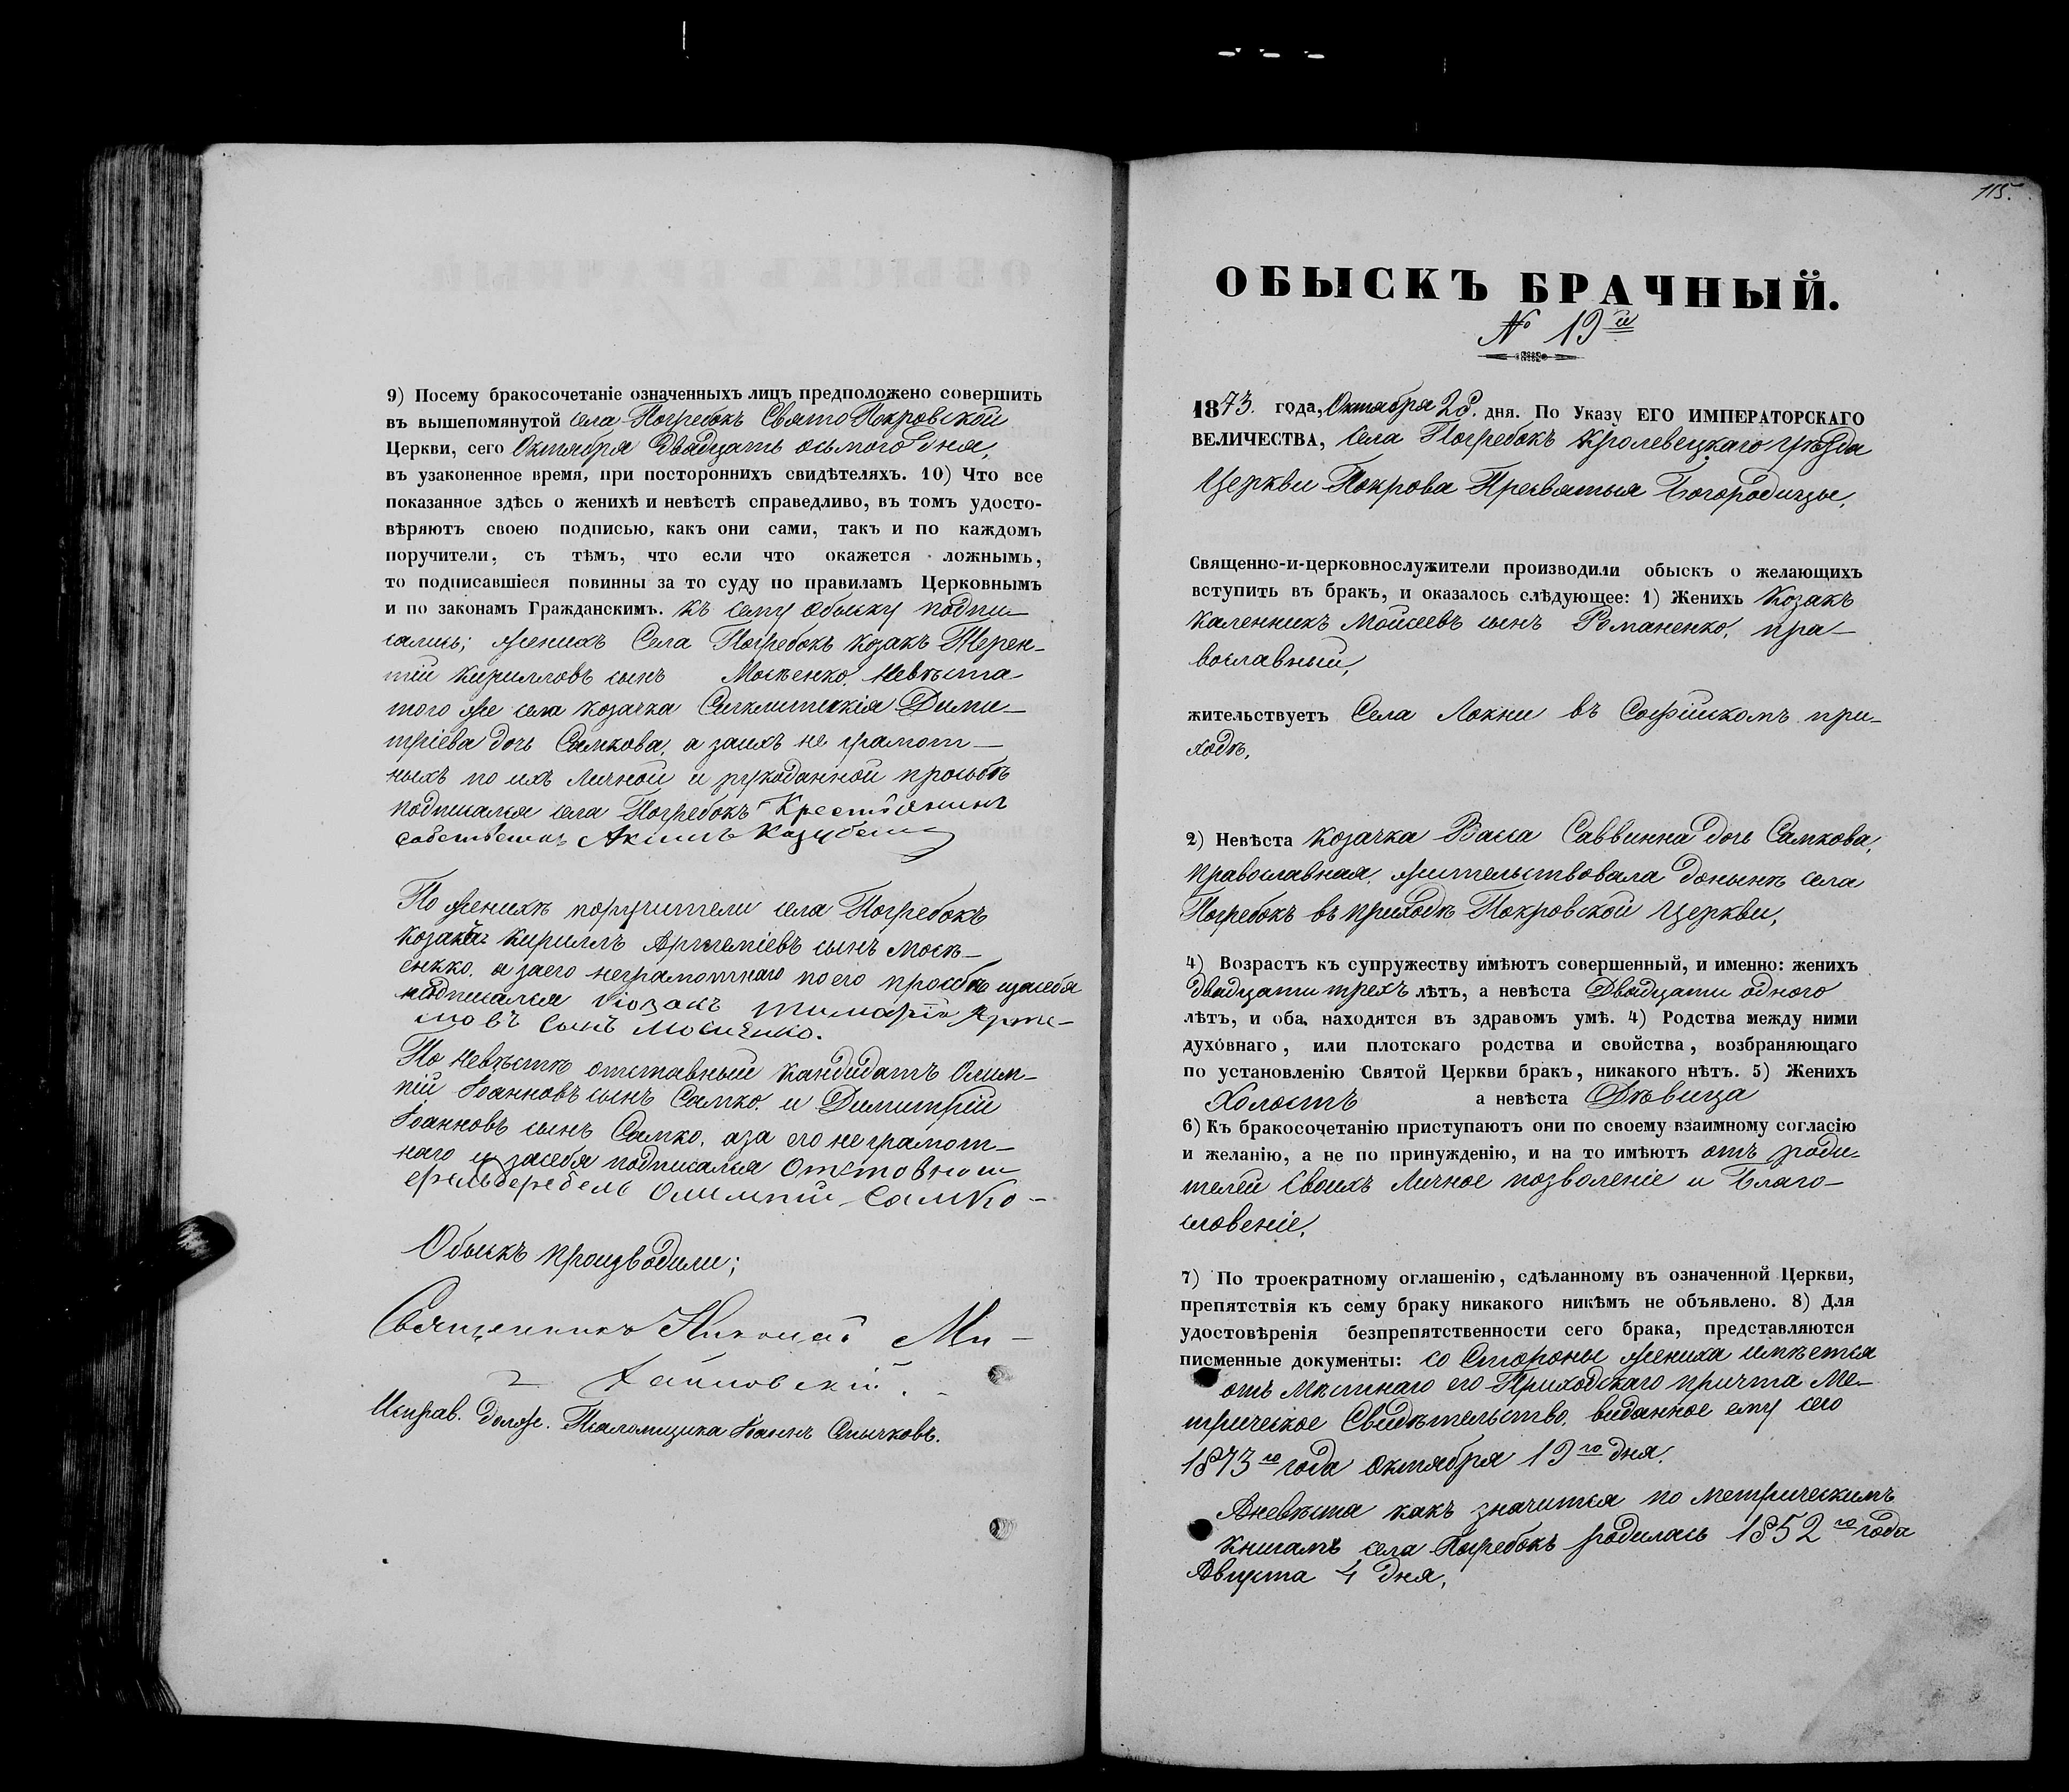 9) Посему бракосочетаніе означенныхъ лицъ предположено совершить
въ вышепомянутой села Погребокъ Свято Покровской
Церкви, сего Октября Двадцать осьмого дня,
въ узаконенное время, при постороннихъ свидѣтеляхъ. 10) Что все
показанное здѣсь о женихѣ и невѣстѣ справедливо, въ томъ удосто-
вѣряютъ своею подписью, какъ они сами, такъ и по каждомъ
поручители, съ тѣмъ, что если что окажется ложнымъ,
то подписавшіеся повинны за то суду по правиламъ Церковнымъ
и по законамъ Гражданскимъ. Къ сему обыску подпи-
сались; женихъ Села Погребокъ козакъ Терен-
тій Кирилловъ сынъ Мосѣенко. Невѣста
того же села козачка Синклитикія Дими-
тріева дочь Самкова, а заихъ не грамот-
ныхъ по ихъ личной и рукоданной просьбѣ
подписался села Погребокъ Крестьянинъ
собственикъ Акимъ
По женихѣ поручители села Погребокъ
козакъ Кириллъ Артеміевъ сынъ Мосѣ-
енко, а заего неграмотнаго по его прозбѣ изасебя
подписался козакъ Тимофій Арте-
мовъ сынъ Мосиенко.
По невѣстѣ отставный кандидатъ Олим-
пій Іоанновъ сынъ Самко, и Димитрій
Іоанновъ сынъ Самко, аза его не грамот-
наго и засебя подписался Отставной
Олимпий Самко-
Обыскъ производили;
Священникъ Николай Ми-
хайловскій.
Исправ. долж. Псаломщика Іоаннъ Смычковъ.
115.
ОБЫСКЪ БРАЧНЫЙ.
№ 19й
1873. года, Октября 28. дня. По Указу ЕГО ИМПЕРАТОРСКАГО
ВЕЛИЧЕСТВА, села Погребокъ Кролевецкаго уѣзда
Церкви Покрова Пресвятыя Богородицы,
Священно-и-церковнослужители производили обыскъ о желающихъ
вступить въ бракъ, и оказалось слѣдующее: 1) Женихъ Козакъ
Каленникъ Моисеевъ сынъ Романенко, пра-
вославный,
жительствуетъ Села Локни въ Софійскомъ при-
ходѣ,
2) Невѣста козачка Васса Саввинна дочь Самкова,
православная, жительствовала донынѣ села
Погребокъ въ приходѣ Покровской церкви,
4) Возрастъ къ супружеству имѣютъ совершенный, и именно: женихъ
двадцати трехъ лѣтъ, а невѣста Двадцати одного
лѣтъ, и оба находятся въ здравомъ умѣ. 4) Родства между ними
духовнаго, или плотскаго родства и свойства, возбраняющаго
по установленію Святой Церкви бракъ, никакого нѣтъ. 5) Женихъ
Холостъ а невѣста Дѣвица
6) Къ бракосочетанію приступаютъ они по своему взаимному согласію
и желанію, а не по принужденію, и на то имѣютъ отъ роди-
телей своихъ личное позволеніе и Благо-
словеніе,
7) По троекратному оглашенію, сдѣланному въ означенной Церкви,
препятствія къ сему браку никакого никѣмъ не объявлено. 8) Для
удостовѣренія безпрепятственности сего брака, представляются
писменные документы: со Стороны жениха имѣется
отъ Мѣстнаго его Приходскаго причта Ме-
трическое Свидѣтельство, виданное ему сего
1873го года октября 19го дня.
Аневѣста какъ значится по метрическимъ
книгамъ села Погребокъ родилась 1852го года
Августа 4 дня,